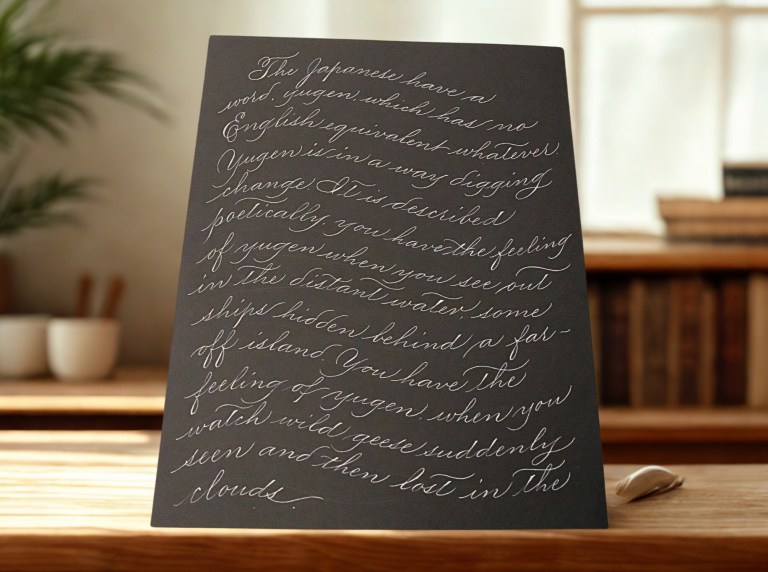 The Japanese have a
word, yugen, which has no
English equivalent whatever.
Yugen is in a way digging
change. It is described
poetically, you have the feeling
of yugen when you see out
in the distant water, some
ships hidden behind a far-
off island. You have the
feeling of yugen, when you
watch wild geese suddenly
seen and then lost in the
clouds.